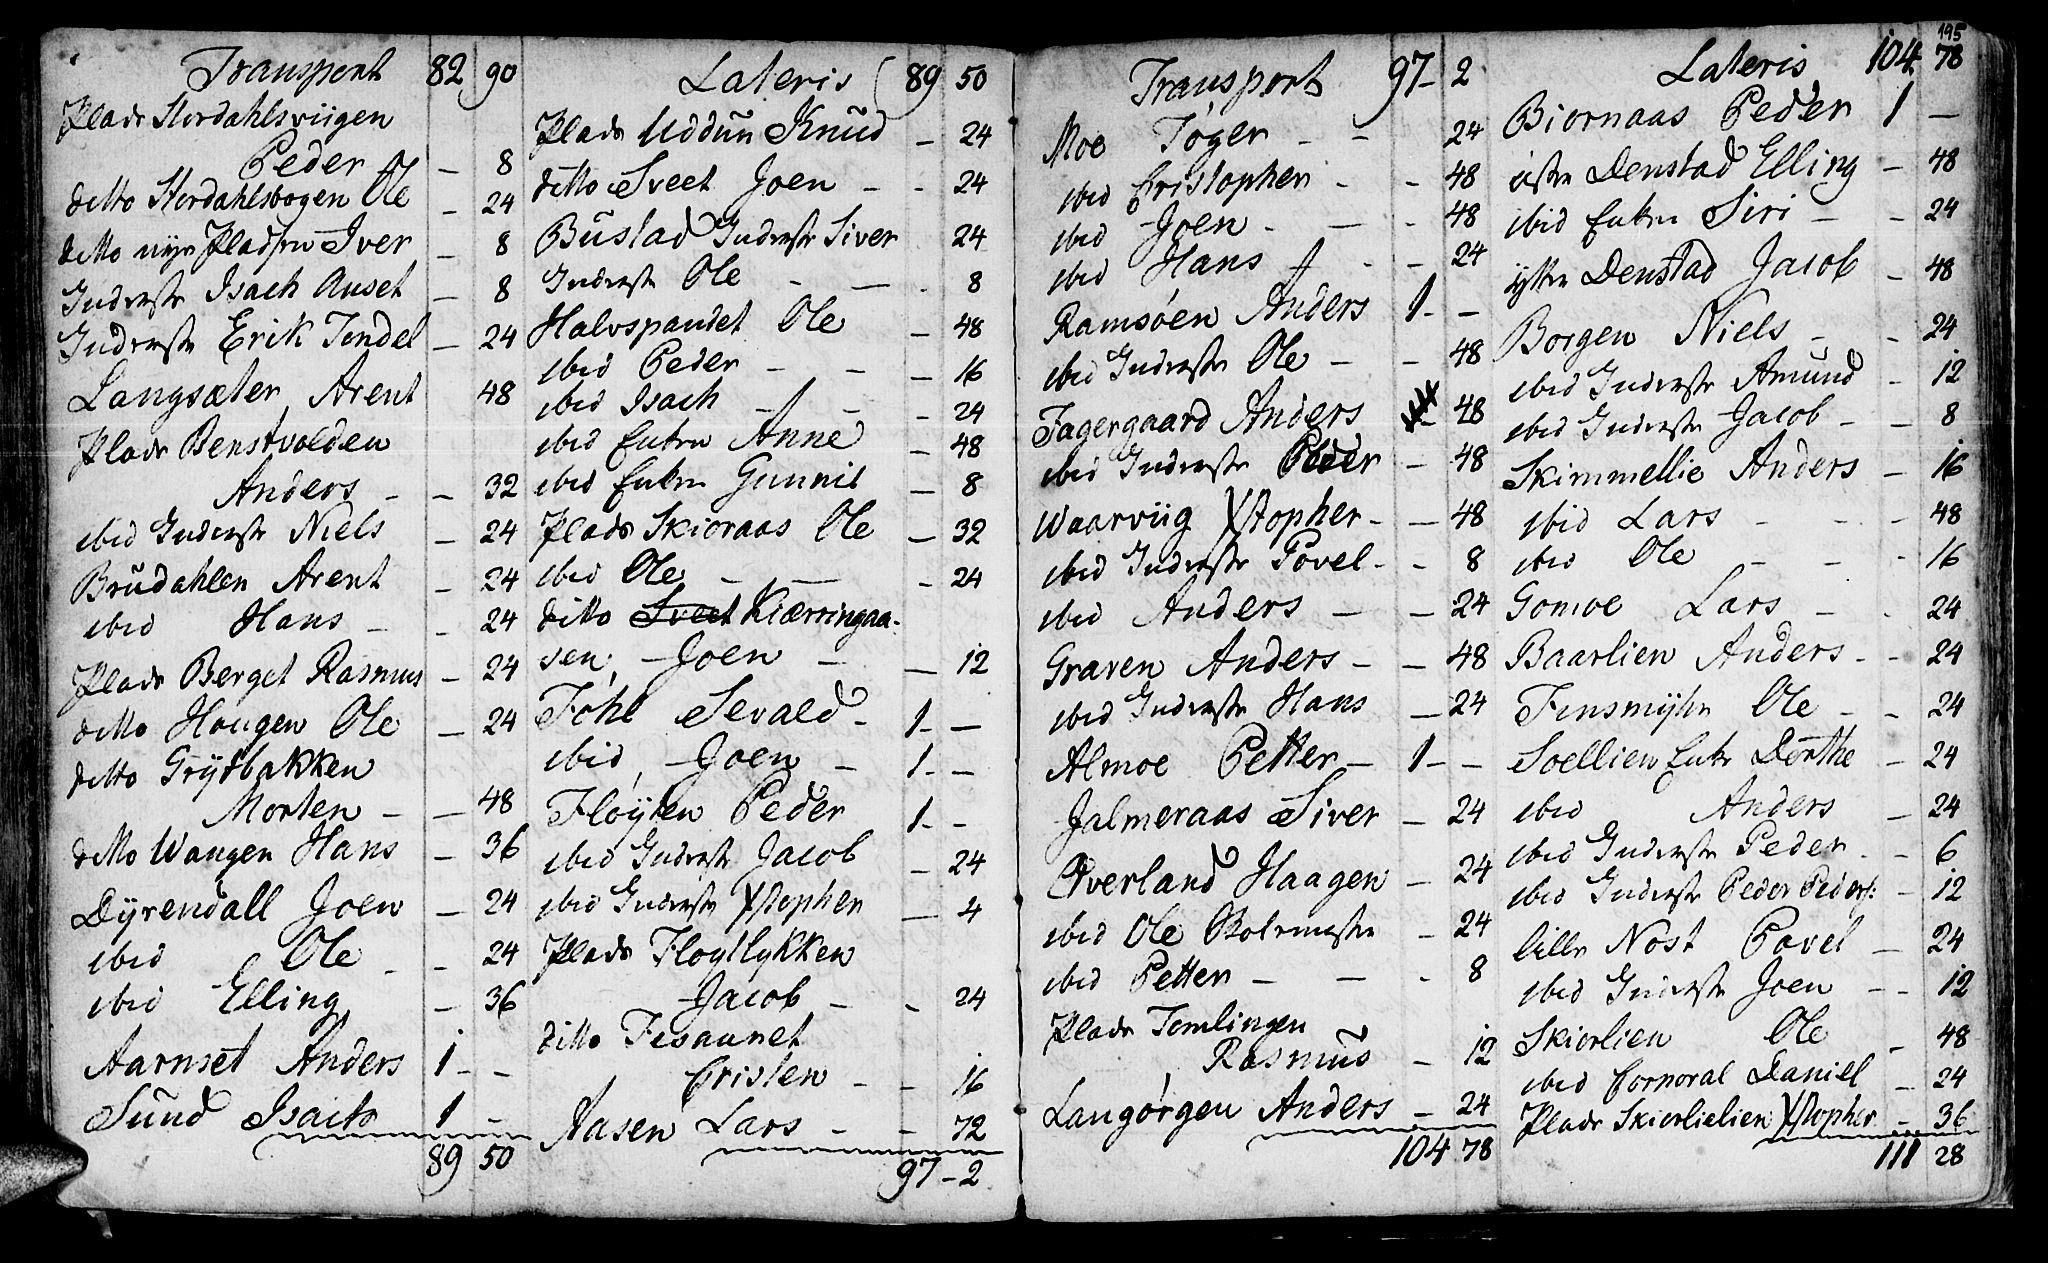 Transport 82 90
Plads Stordahlsviigen
Peder - 8
ditto Stordahlsbogen Ole - 24
ditto nye Pladsen Iver - 8
Inderste Isach Auset - 8
Inderste Erik Tendel - 24
Langsæter Arent 48
Plads Benstvolden
Anders - - 32
ibid Inderste Niels 24
Brudahlen Arent - 24
ibid Hans - - 24
Plads Berget Rasmus - 24
ditto Hougen Ole - 24
ditto Grÿtbakken
Morten - - 48
ditto Wangen Hans - 36
Dÿrendall Joen - 24
ibid Ole - - 24
ibid Elling - 36
Aarnset Anders 1 - -
Sund Isach 1 -
89 50
Lateris 89 50
Plads Uddun Knud - 24
ditto Sveet Joen - - 24
Bustad Inderste Siver 24
Inderste Ole - - - 8
Halvspandet Ole - 48
ibid Peder - - - 16
ibid Isach - - - 24
ibid Enken Anne - 48
ibid Enken Gunnil - 8
Plads Skioraas Ole - 32
ibid Ole - - - 24
ditto Sveet Kiærringaa-
sen, Joen - - 12
Föhl Sevald - 1 - -
ibid, Joen - 1 - -
Fløÿten Peder 1 - -
ibid Inderste Jacob - 24
ibid Inderste Xstopher - 4
Plads Floytlykken
Jacob - - 24
ditto Fesaunet
Cristen - - 16
Aasen Lars - - 72
97 - 2
Transport 97 - 2
Moe Tøger - - 24
ibid Cristopher - - 48
ibid Joen - - - 48
ibid Hans - - - 24
Ramsøen Anders 1 - -
ibid Inderste Ole - - 48
Fagergaard Anders - 48
ibid Inderste Peder - 48
Waarviig Xstopher - - 48
ibid Inderste Povel - - 8
ibid Anders - - 24
Graven Anders - - 48
ibid Inderste Hans - 24
Almoe Petter - 1 - -
Jalmeraas Siver - 24
Overland Haagen - 24
ibid Ole - 24
ibid Petter - - - 8
Plads Tomlingen
Rasmus - 12
Langørgen Anders - 24
104 78
195
Lateris 104 78
Biornaas Peder 1 -
østre Denstad Elling - 48
ibid Enken Siri - - 24
ÿtre Denstad Jacob - 48
Borgen Niels - - 24
ibid Inderste Amund - 12
ibid Inderste Jacob - - 8
Skimmellie Anders - 16
ibid Lars - - - 48
ibid Ole - - - 16
Gomoe Lars - - 24
Baarlien Anders - - 24
Finsmÿhr Ole - - 24
Soellien Enke Dorthe - 24
ibid Anders - 24
ibid Inderste Peder - - 6
ibid Inderste Peder Peders: - 12
lille Nost Povel - 24
ibid Inderste Joen - - 12
Skiorlien Ole - 48
ibid Corporal Daniel - 24
Plads Skiorlielien Xstopher - 36
111 28